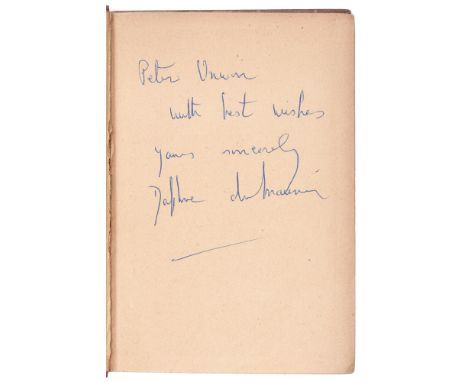 Peter Unwin
with best wishes
yours sincerely
Daphne du Maurier